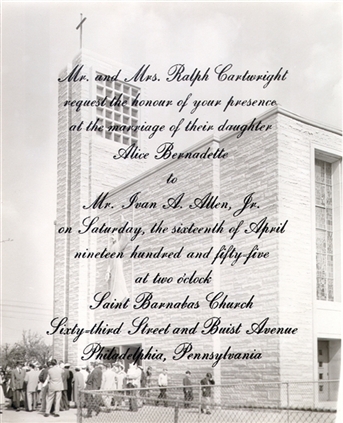 Mr. and Mrs. Ralph Cartwright
request the honour of your presence
at the marriage of their daughter
Alice Bernadette
to
Mr. Ivan A. Allen, Jr.
on Saturday, the sixteenth of April
nineteen hundred and fifty-five
at two o'clock
Saint Barnabas Church
Sixty-third Street and Buist Avenue
Philadelphia, Pennsylvania